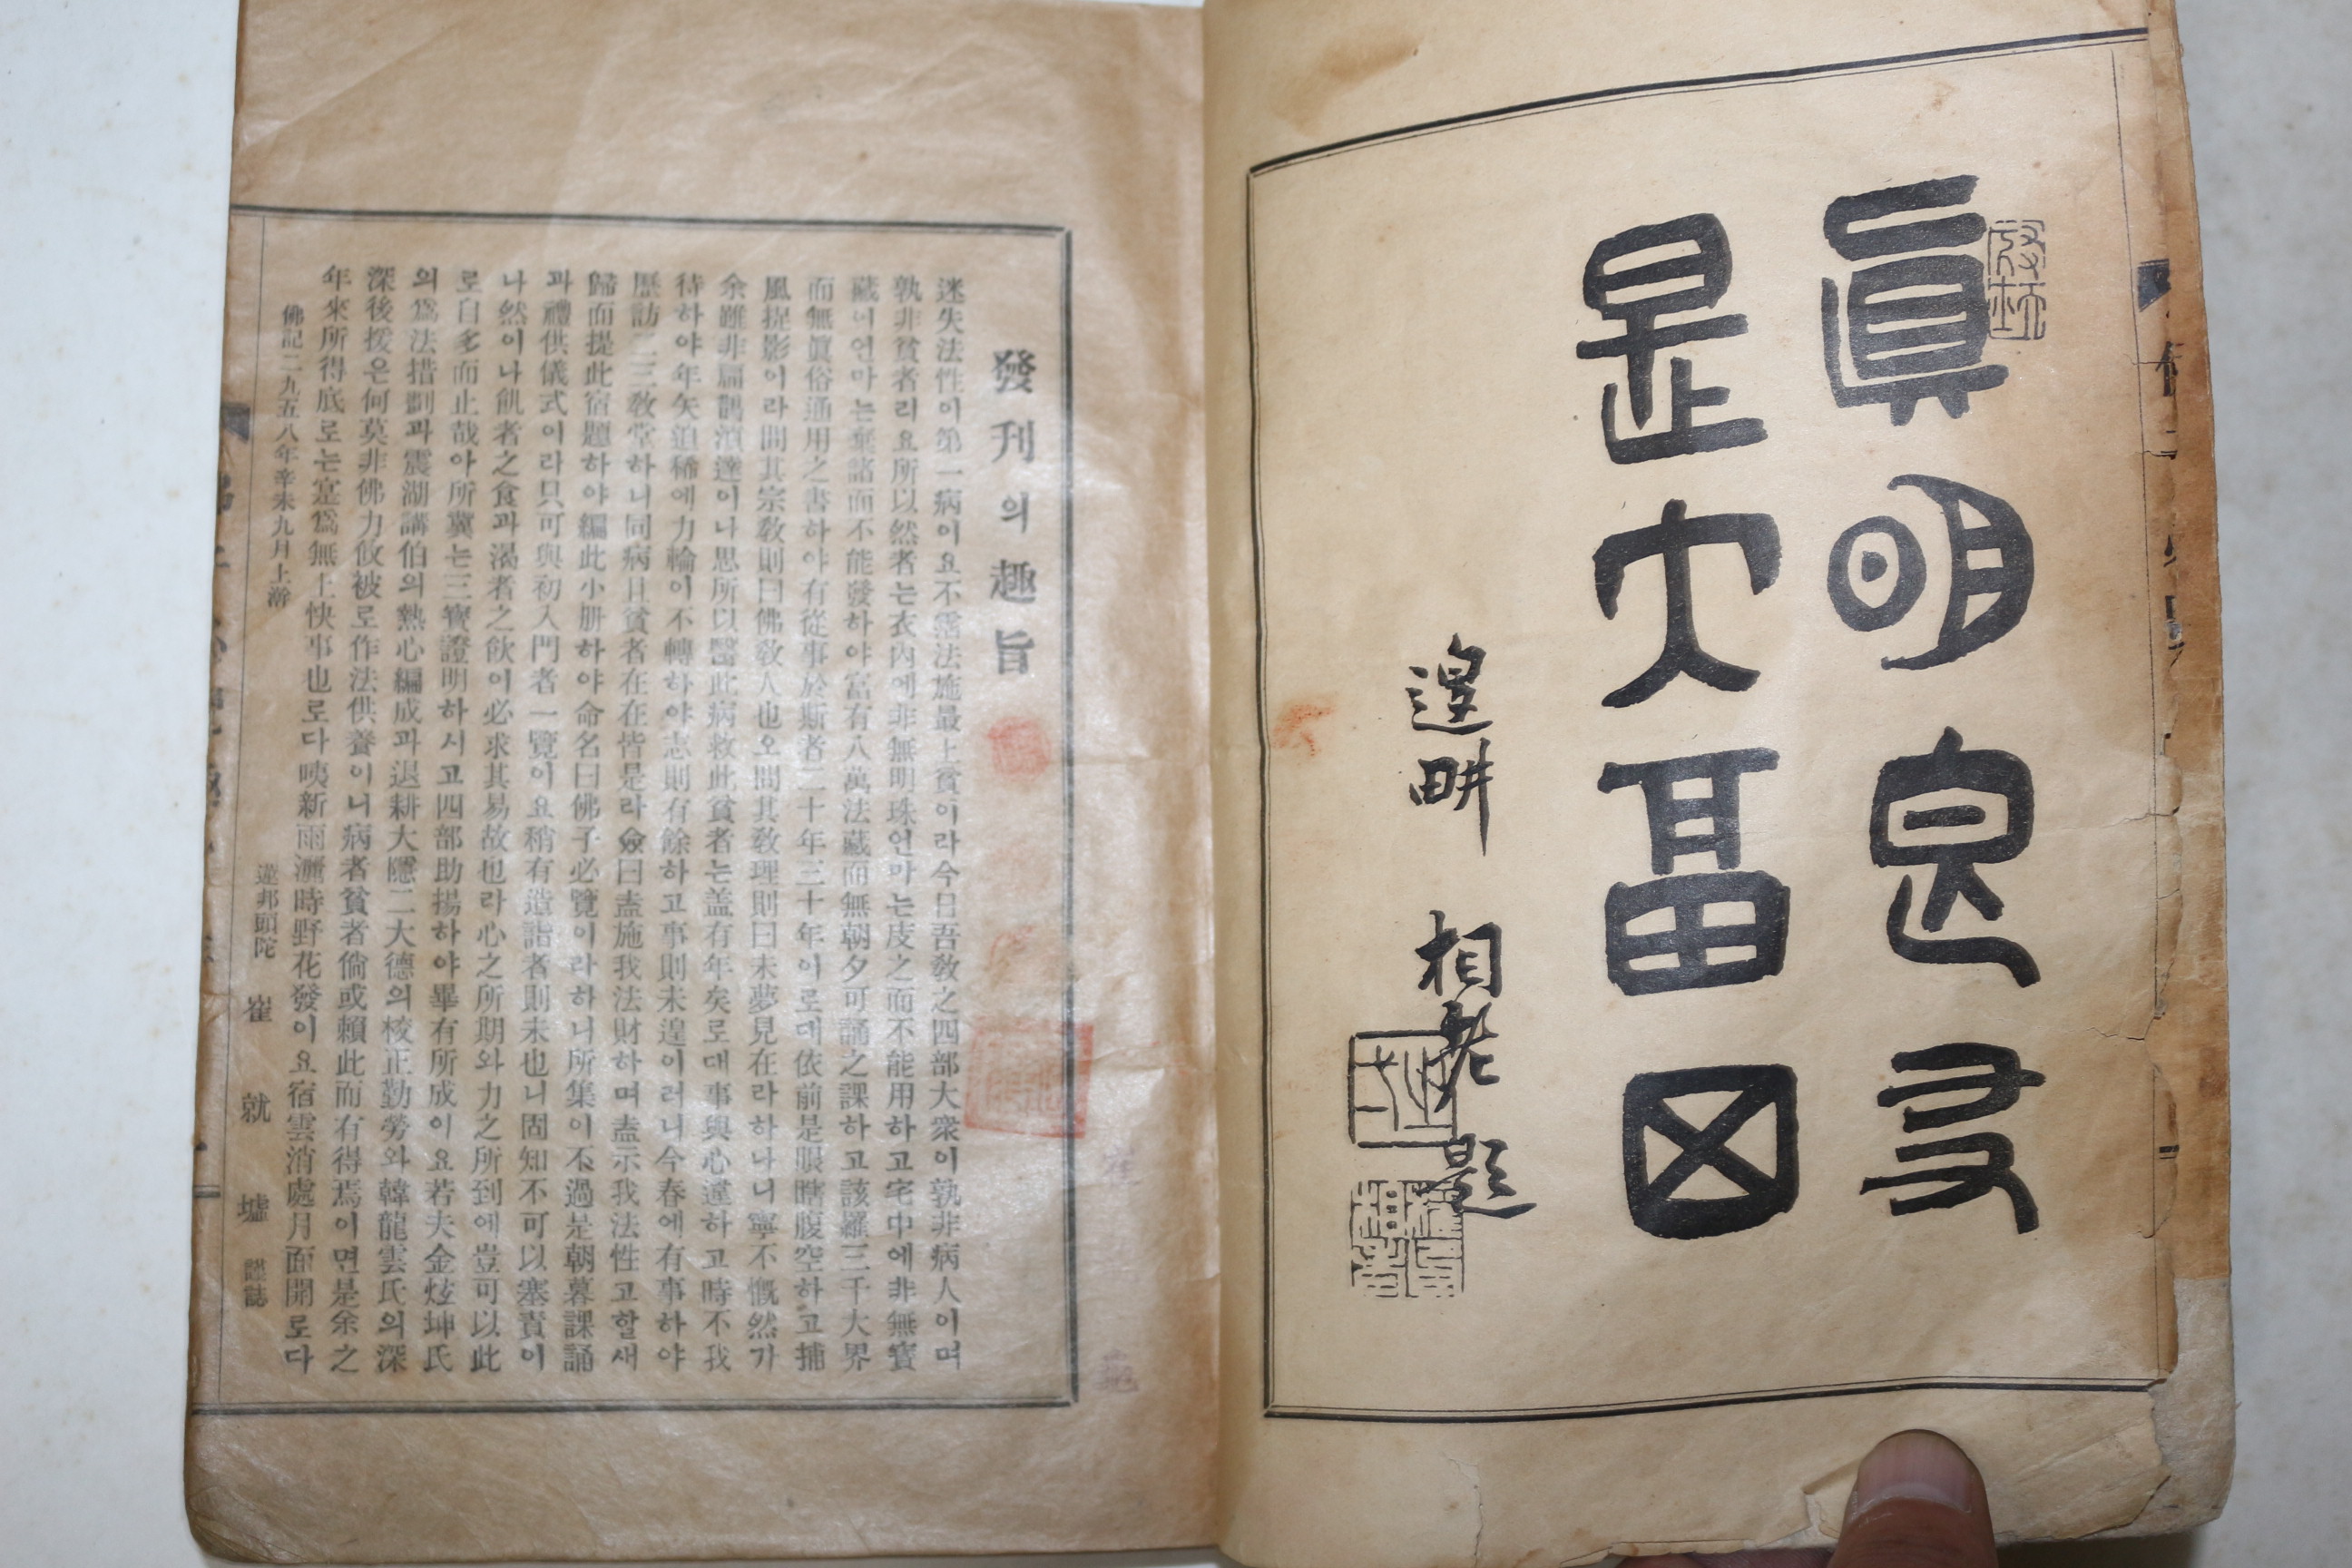 眞明良友
是大畐田
退畊 相老 題
發刊의趣旨
迷失法性이第一病이요不霑法施最上貧이라今日吾敎之四部大衆이孰非病人이며
孰非貧者리요所以然者는衣內에非無明珠언마는庋之而不能用하고宅中에非無寶
藏이언마는棄諸而不能發하야富有八萬法藏而無朝夕可誦之課하고該羅三千大界
而無眞俗通用之書하야有從事於斯者二十年三十年이로대依前是眼瞎腹空하고捕
風捉影이라問其宗敎則曰佛敎人也오問其敎理則曰未夢見在라하나니寧不慨然가
余雖非扁鵲須達이나思所以醫此病救此貧者는盖有年矣로대事與心違하고時不我
待하야年矢迫稀에力輪이不轉하야志則有餘하고事則未遑이러니今春에有事하야
歷訪二三敎堂하니同病且貧者在在皆是라僉曰盍施我法財하며盍示我法性고할새
歸而提此宿題하야編此小册하야命名曰佛子必覽이라하니所集이不過是朝暮課誦
과禮供儀式이라只可與初入門者一覽이요稍有造詣者則未也니固知不可以塞責이
나然이나飢者之食과渴者之飮이必求其易故也라心之所期와力之所到에豈可以此
로自多而止哉아所冀는三寶證明하시고四部助揚하야畢有所成이요若夫金炫坤氏
의爲法措劃과震湖講伯의熱心編成과退耕大隱二大德의校正勤勞와韓龍雲氏의深
深後援은何莫非佛力攸被로作法供養이니病者貧者倘或賴此而有得焉이면是余之
年來所得底로는寔爲無上快事也로다咦新雨灑時野花發이요宿雲消處月面開로다
佛記二九五八年辛未九月上澣
蓮邦頭陀 崔就墟 謹誌